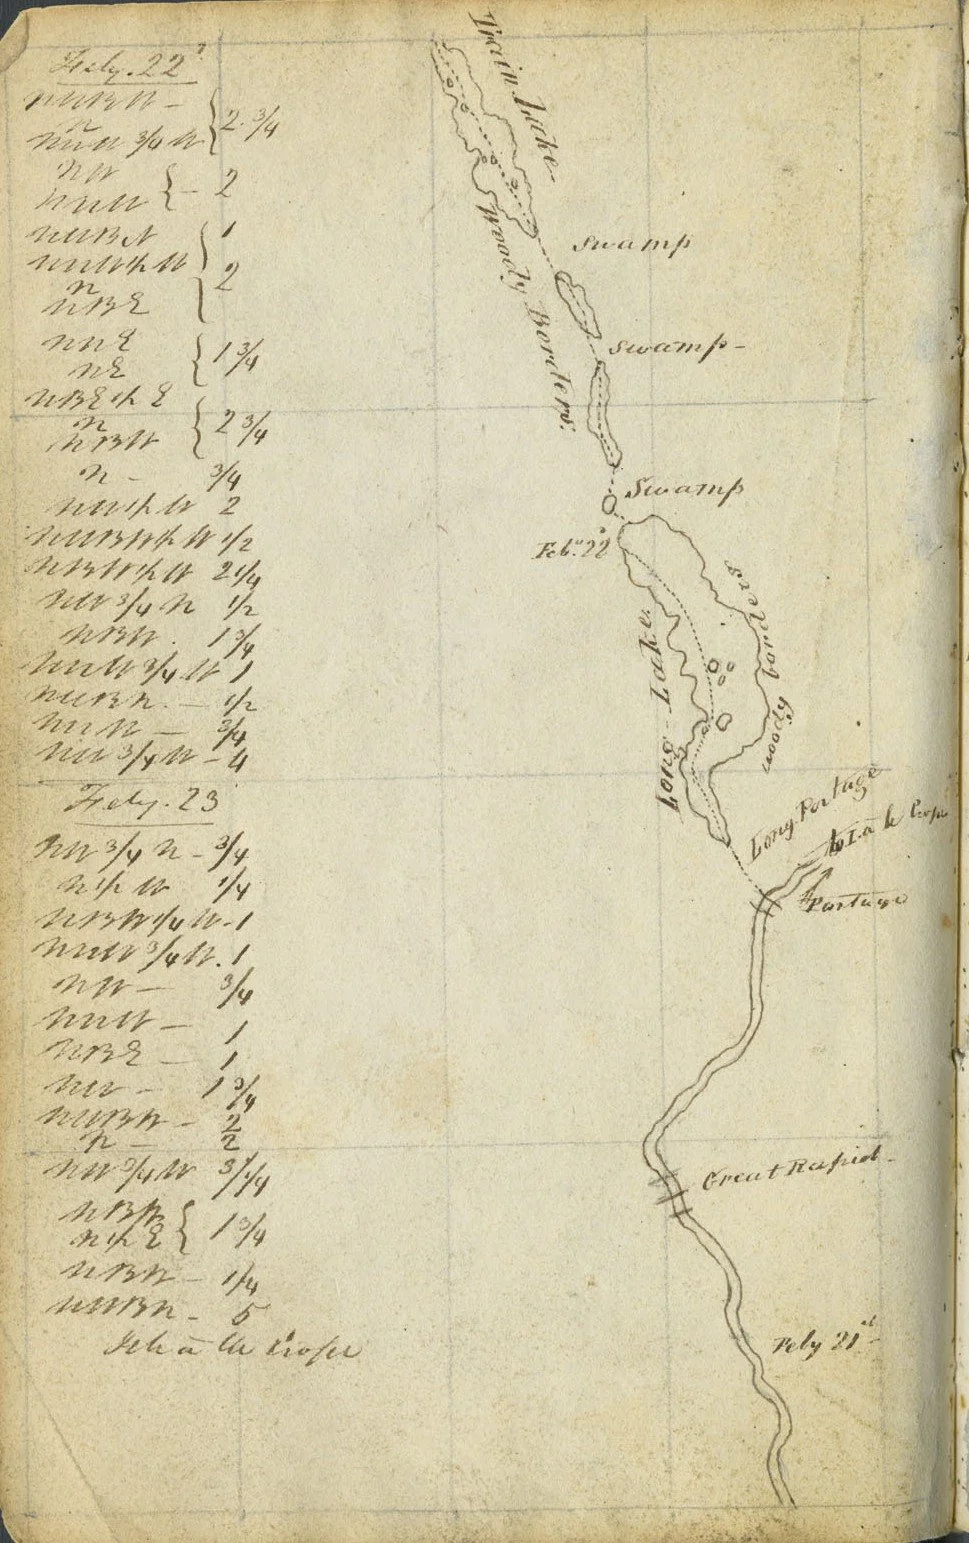 Feby. 22d
NWBW -
N
NW 3/4 W } 2 3/4
NW
NNW } - 2
NWBN 1
NNW 1/2 W
N
NBE } 2
NNE
NE } 1 3/4
NBE 1/2 E
N
NBW } 2 3/4
N - 3/4
NW 1/2 W 2
NWBW 1/2 W 1/2
NBW 1/2 W 2 1/4
NW 3/4 N 1/2
NBW. 1 3/4
NNW 3/4 W 1
NWBN. - 1/2
NNW - 3/4
NW 3/4 W - 4
Feby. 23
NW 3/4 N - 3/4
N 1/2 W 1/4
NBW 1/4 W - 1
NNW 3/4 W. 1
NW - 3/4
NNW - 1
NBE - 1
NW - 1 3/4
NWBW - 2
N - 2
NW 3/4 W 3 1/4
NBW
N 1/2 E } 1 3/4
NBW - 1/4
NWBN - 5
Isle a la Crosse
Train Lake -
Woody Borders.
Swamp
Swamp -
Swamp
Feby. 22d
Long - Lake
woody borders
Long Portage
to I. a la Crosse
Portage
Great Rapid -
Feby 21st -